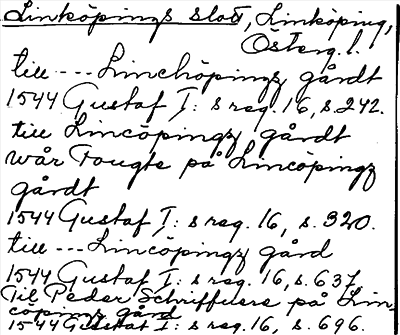 Linköpings slott, Linköping,
Österg. l.
till --- Linchöpingz gårdt
1544 Gustaf I:s reg. 16, s. 242.
till Lincöpingz gårdt
wår Fougte på Lincopingz
gårdt
1544 Gustaf I:s reg. 16, s. 320.
till --- Lincöpingz gård
1544 Gustaf I:s reg. 16, s. 637.
Til Peder Schriffuere på Lin-
cöpingz gård
1544 Gustaf I:s reg. 16, s. 696.